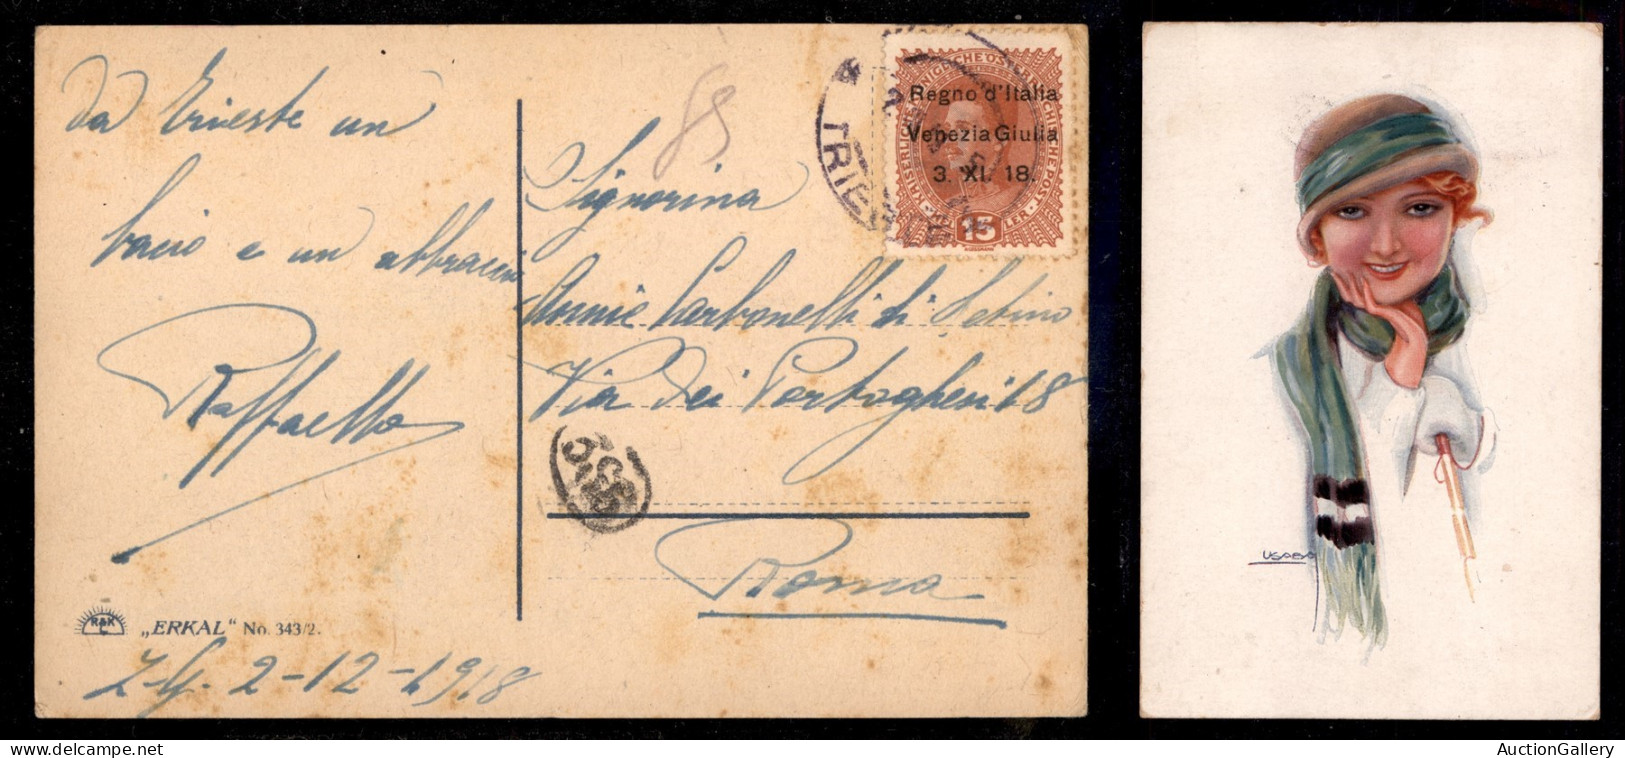 da Trieste un
bacio e un abbraccio
Raffaello
„ERKAL" No. 343/2.
Z.G. 2-12-1918
85
TRIESTE
KAISERLICHE KÖNIGLICHE ÖSTERREICHISCHE POST
Regno d'Italia
Venezia Giulia
3. XI. 18.
15
HELLER
Signorina
Annie Carbonelli di Letino
Via dei Portoghesi 18
Roma
USABAL
www.delcampe.net
AuctionGallery